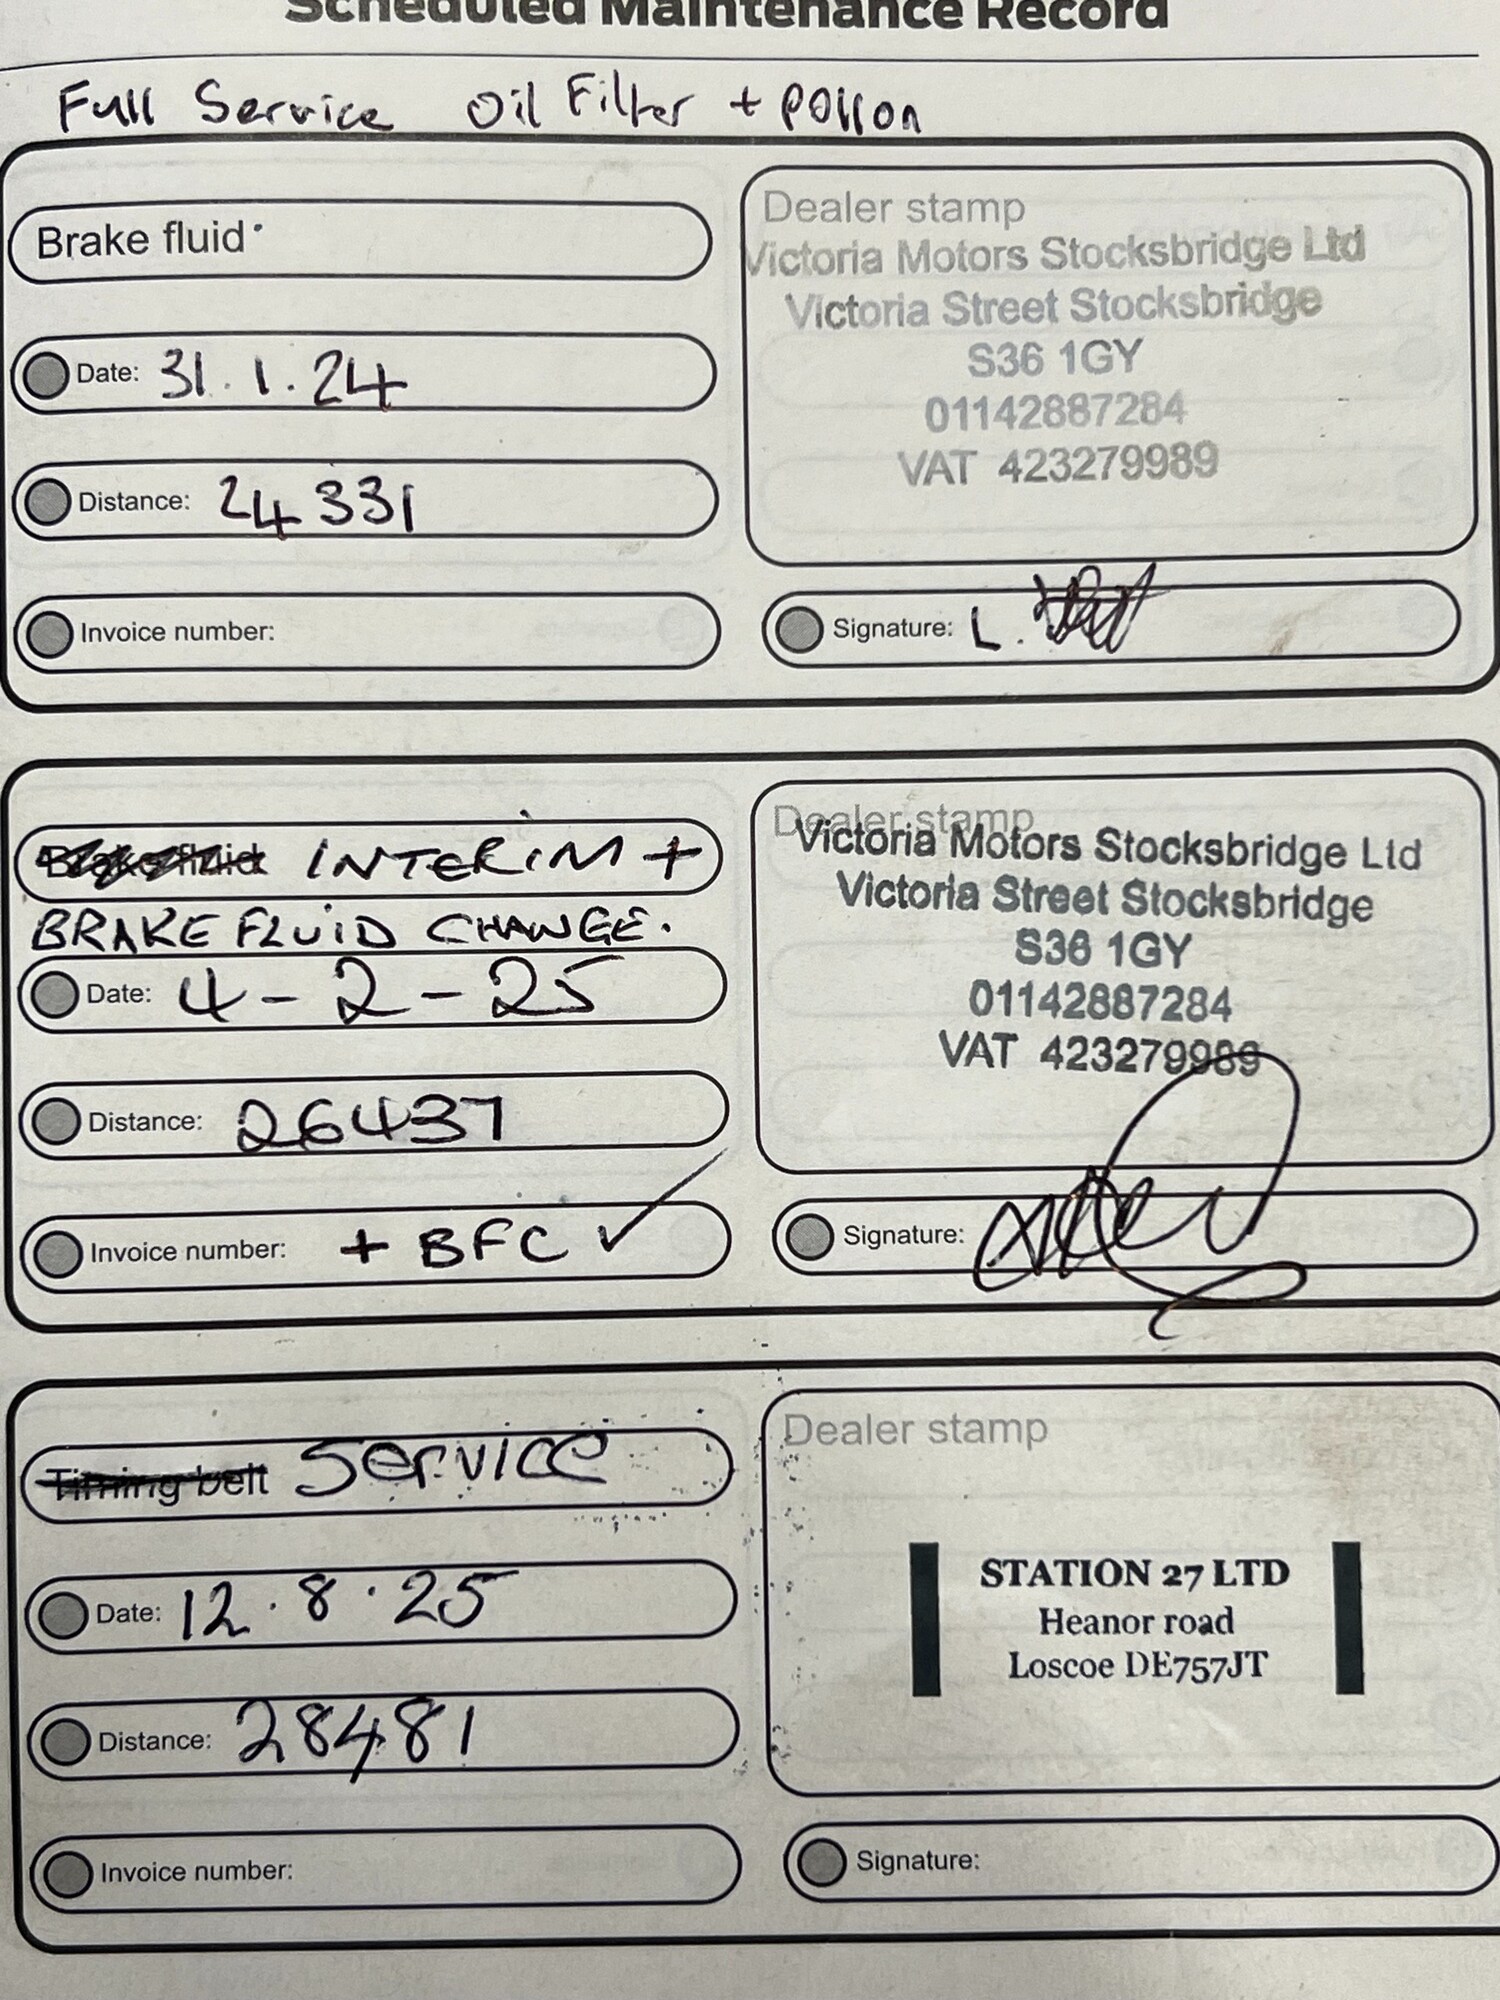 Scheduled Maintenance Record
Full Service Oil Filter + pollon
Brake fluid
Date: 31.1.24
Distance: 24331
Invoice number:
Dealer stamp
Victoria Motors Stocksbridge Ltd
Victoria Street Stocksbridge
S36 1GY
01142887284
VAT 423279989
Signature: L.
Brake fluid INTERIM +
BRAKE FLUID CHANGE.
Date: 4-2-25
Distance: 26437
Invoice number: + BFC ✓
Dealer stamp
Victoria Motors Stocksbridge Ltd
Victoria Street Stocksbridge
S36 1GY
01142887284
VAT 423279989
Signature:
Timing belt Service
Date: 12.8.25
Distance: 28481
Invoice number:
Dealer stamp
STATION 27 LTD
Heanor road
Loscoe DE757JT
Signature: